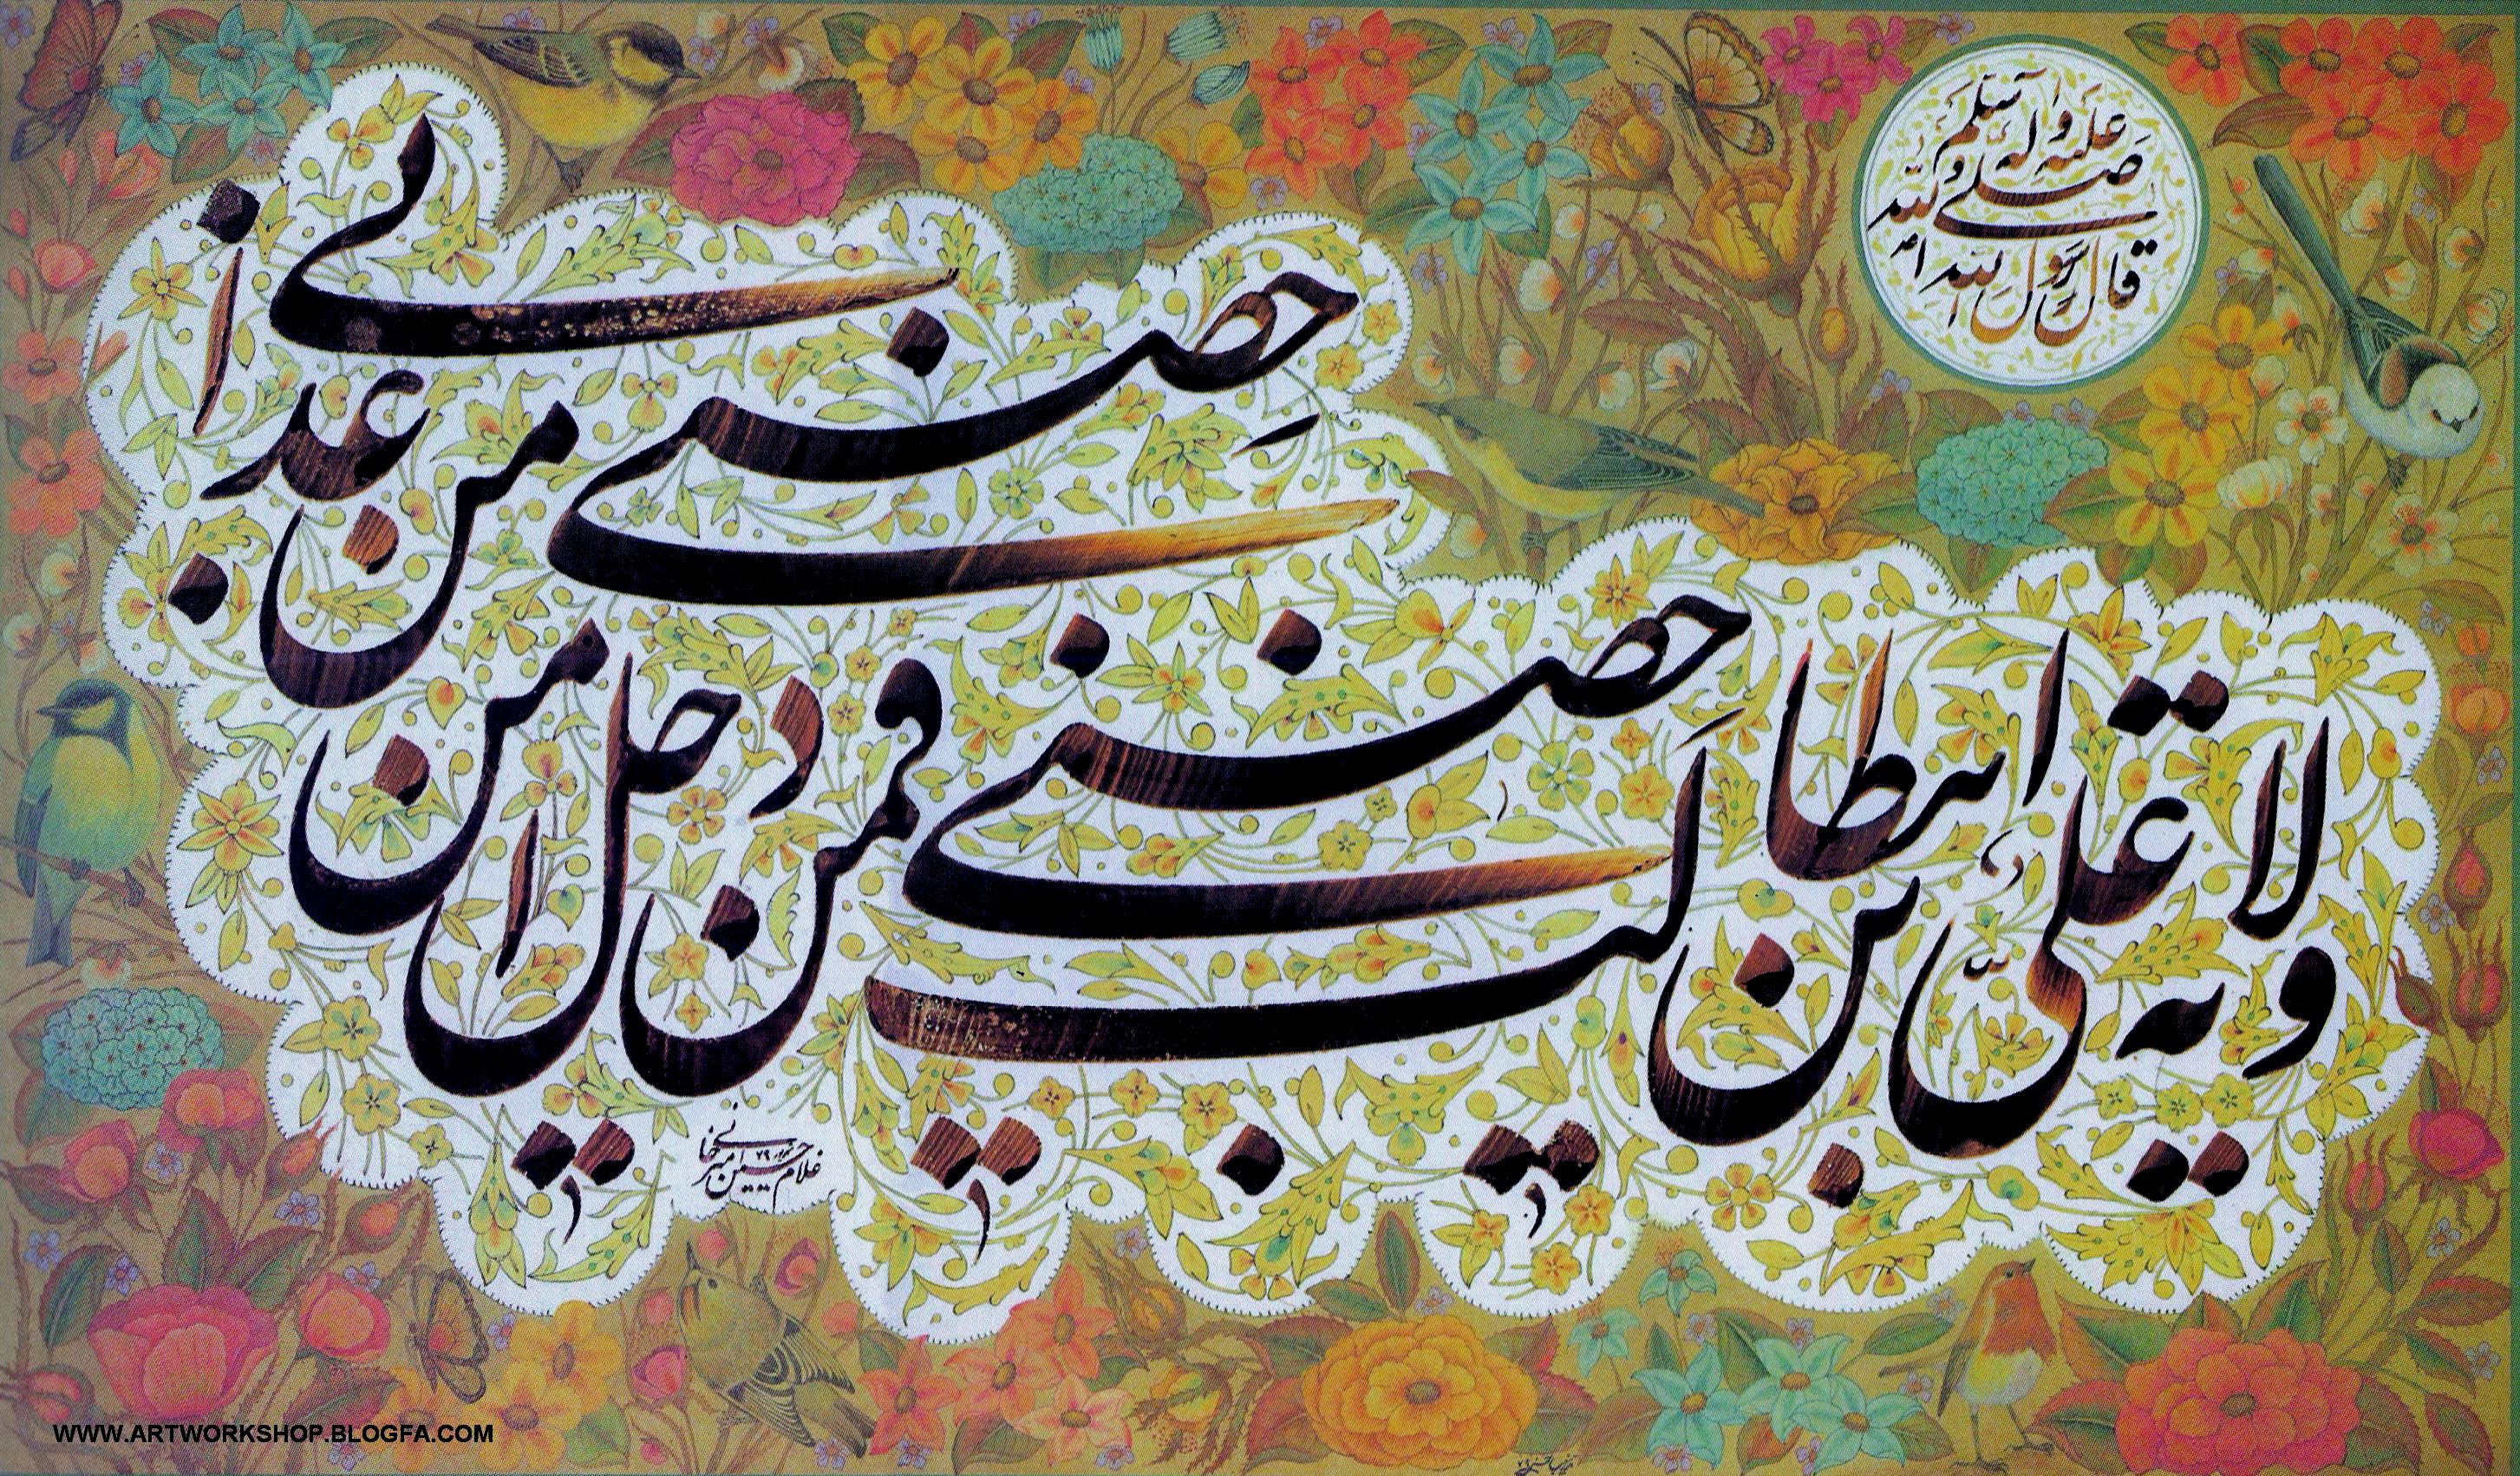 قال رسول الله
صلی الله
علیه و آله و سلم
ولایة علی ابن ابیطالب حصنی
فمن دخل حصنی امن من عذابی
غلامحسین امیرخانی
WWW.ARTWORKSHOP.BLOGFA.COM